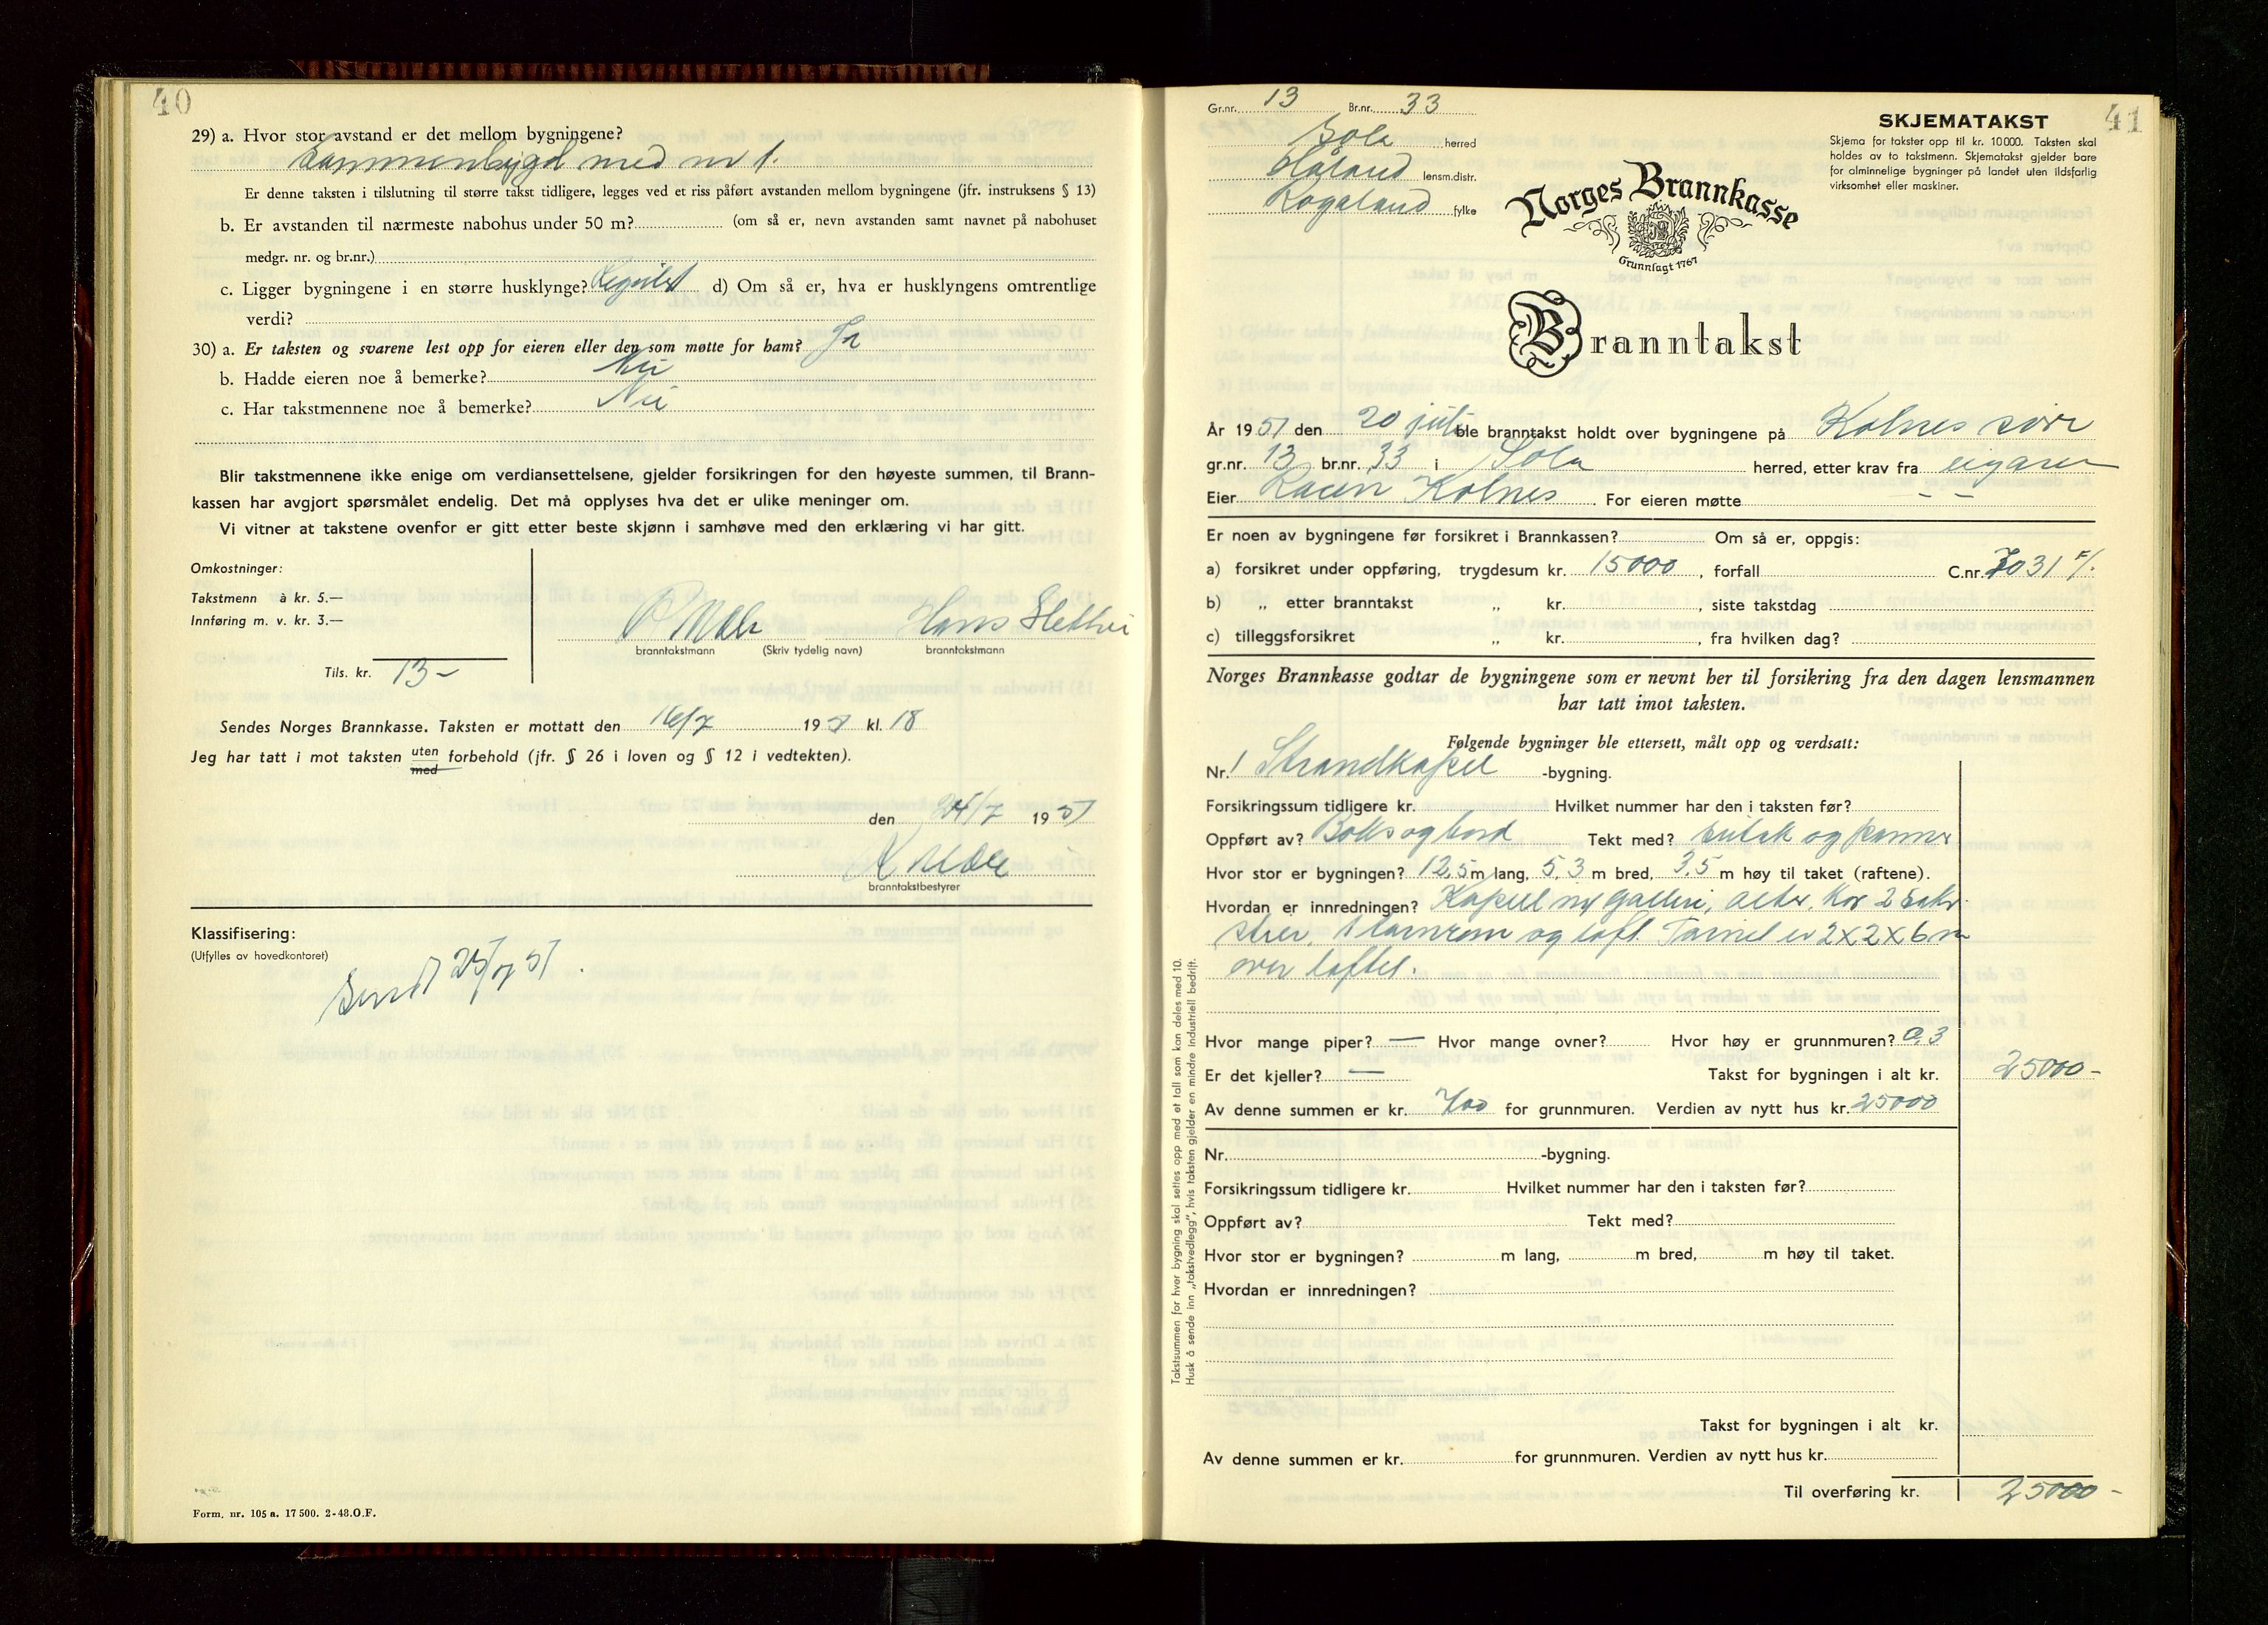 40
29) a. Hvor stor avstand er det mellom bygningene?
Sammenbygd med nr 1.
Er denne taksten i tilslutning til større takst tidligere, legges ved et riss påført avstanden mellom bygningene (jfr. instruksens § 13)
b. Er avstanden til nærmeste nabohus under 50 m? (om så er, nevn avstanden samt navnet på nabohuset
medgr. nr. og br.nr.)
c. Ligger bygningene i en større husklynge? d) Om så er, hva er husklyngens omtrentlige
verdi?
30) a. Er taksten og svarene lest opp for eieren eller den som møtte for ham? Ja
b. Hadde eieren noe å bemerke? Nei
c. Har takstmennene noe å bemerke? Nei
Blir takstmennene ikke enige om verdiansettelsene, gjelder forsikringen for den høyeste summen, til Brann-
kassen har avgjort spørsmålet endelig. Det må opplyses hva det er ulike meninger om.
Vi vitner at takstene ovenfor er gitt etter beste skjønn i samhøve med den erklæring vi har gitt.
Omkostninger:
Takstmenn à kr. 5.—
Innføring m. v. kr. 3.—
Tils. kr. 13-
Hans
branntakstmann (Skriv tydelig navn) branntakstmann
Sendes Norges Brannkasse. Taksten er mottatt den 16/7 19 kl. 18
Jeg har tatt i mot taksten uten med forbehold (jfr. § 26 i loven og § 12 i vedtekten).
den 24/7 1951
branntakstbestyrer
Klassifisering:
(Utfylles av hovedkontoret)
Send 25/7 51.
Form. nr. 105 a. 17 500. 2-48.O.F.
41
Gr.nr. 13 Br.nr. 33
Sola herred
Håland lensm.distr.
Rogaland fylke
SKJEMATAKST
Skjema for takster opp til kr. 10 000. Taksten skal
holdes av to takstmenn. Skjematakst gjelder bare
for alminnelige bygninger på landet uten ildsfarlig
virksomhet eller maskiner.
Norges Brannkasse
Grunnlagt 1767
Branntakst
År 1951 den 20 juli ble branntakst holdt over bygningene på Kolnes
gr.nr. 13 br.nr. 33 i Sola herred, etter krav fra eigaren
Eier Kolnes. For eieren møtte — —
Er noen av bygningene før forsikret i Brannkassen? Om så er, oppgis:
a) forsikret under oppføring, trygdesum kr. 15000, forfall C.nr. 7031 F/.
b) „ etter branntakst „ kr. , siste takstdag
c) tilleggsforsikret „ kr. , fra hvilken dag?
Norges Brannkasse godtar de bygningene som er nevnt her til forsikring fra den dagen lensmannen
har tatt imot taksten.
Følgende bygninger ble ettersett, målt opp og verdsatt:
Nr. 1 Strandkapel -bygning.
Forsikringssum tidligere kr. Hvilket nummer har den i taksten før?
Oppført av? og bord Tekt med? og panner
Hvor stor er bygningen? 12,5 m lang, 5,3 m bred, 3,5 m høy til taket (raftene).
Hvordan er innredningen? Kapell m/ galleri, alter, kor 2 sakri-
stier, 1 tårnrom og loft. Tårnet er 2x2x6 m
over loftet.
Hvor mange piper? — Hvor mange ovner? Hvor høy er grunnmuren? 0,3
Er det kjeller? — Takst for bygningen i alt kr. 25000-
Av denne summen er kr. 400 for grunnmuren. Verdien av nytt hus kr. 25000
Nr. -bygning.
Forsikringssum tidligere kr. Hvilket nummer har den i taksten før?
Oppført av? Tekt med?
Hvor stor er bygningen? m lang, m bred, m høy til taket.
Hvordan er innredningen?
Takst for bygningen i alt kr.
Av denne summen er kr. for grunnmuren. Verdien av nytt hus kr.
Til overføring kr. 25000-
Takstsummen for hver bygning skal settes opp med et tall som kan deles med 10.
Husk å sende inn „takstvedlegg", hvis taksten gjelder en mindre industriell bedrift.